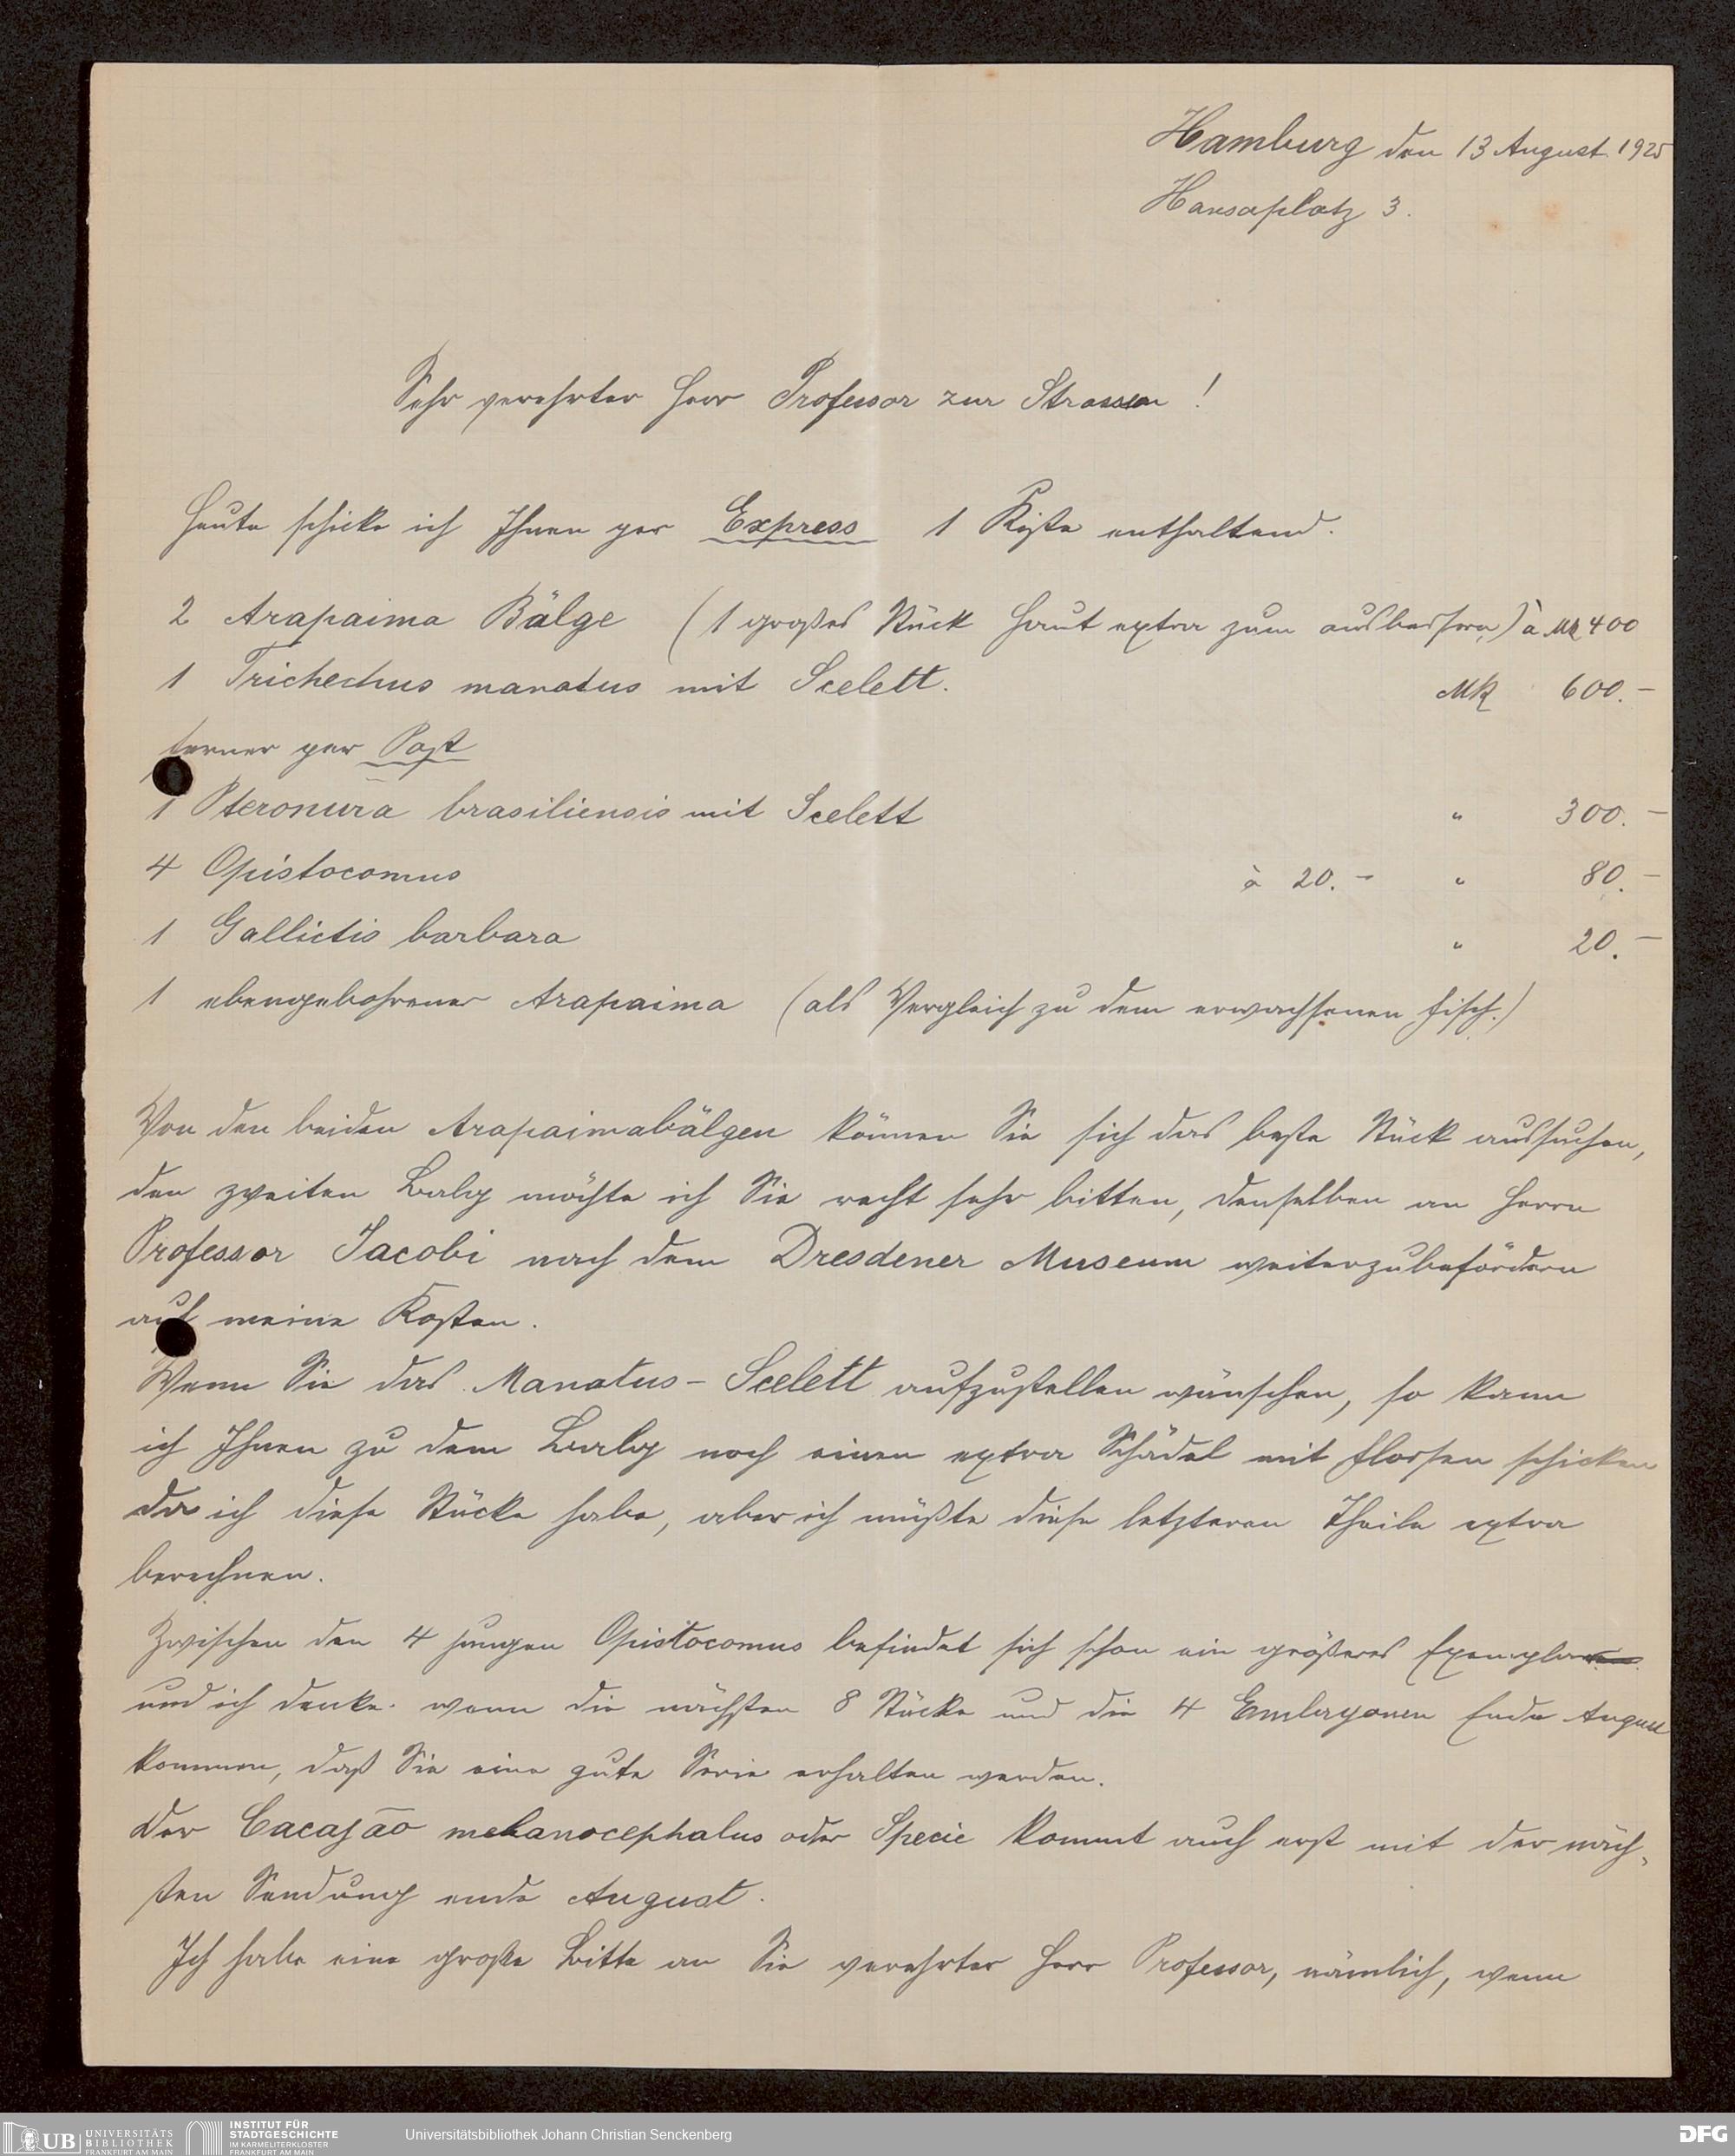 Hamburg den 13 August 1925
Hansaplatz 3.
Sehr verehrter Herr Professor zur Strassen!
Heute schicke ich Ihnen per Express 1 Kiste enthaltend.
2 Arapaima Bälge (1 großes Stück Haut extra zum ausbessern) à Mk 400
1 Trichechus manatus mit Scelett. Mk 600.–
ferner per Post
1 Pteronura brasiliensis mit Scelett " 300.–
4 Opistocomus à 20.– " 80.–
1 Gallictis barbara " 20.–
1 ebengebohrener Arapaima (als Vergleich zu dem erwachsenen Fisch.)
Von den beiden Arapaimabälgen können Sie sich das beste Stück aussuchen,
den zweiten Balg möchte ich Sie recht sehr bitten, denselben an Herrn
Professor Jacobi nach dem Dresdener Museum weiterzubefördern
auf meine Kosten.
Wenn Sie das Manatus-Scelett aufzustellen wünschen, so kann
ich Ihnen zu dem Balg noch einen extra Schädel mit Flossen schicken
da ich diese Stücke habe, aber ich müßte diese letzteren Theile extra
berechnen.
Zwischen den 4 jungen Opistocomus befindet sich schon ein größeres Exemplar
und ich denke wenn die nächsten 8 Stücke und die 4 Embryonen Ende August
kommen, daß Sie eine gute Serie erhalten werden.
Der Cacajāo melanocephalus oder Specie kommt auch erst mit der näch-
sten Sendung ende August.
Ich habe eine große Bitte an Sie verehrter Herr Professor, nämlich, wenn
UB UNIVERSITÄTS
BIBLIOTHEK
FRANKFURT AM MAIN
INSTITUT FÜR
STADTGESCHICHTE
IM KARMELITERKLOSTER
FRANKFURT AM MAIN
Universitätsbibliothek Johann Christian Senckenberg
DFG